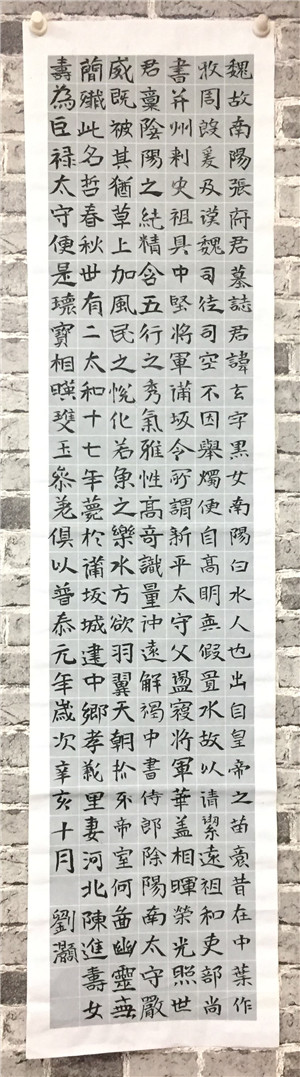 魏故南陽張府君墓誌君諱玄字黑女南陽白水人也出自皇帝之苗裔昔在中葉作
牧周殷爰及漢魏司徒司空不因舉燭便自高明無假置水故以清絜遠祖和吏部尚
書并州刺史祖具中堅將軍蒲坂令所謂新平太守父盪寇將軍華蓋相暉榮光照世
君稟陰陽之純精含五行之秀氣雅性高奇識量沖遠解褐中書侍郎除陽南太守嚴
威既被其猶草上加風民之悅化若魚之樂水方欲羽翼天朝抓牙帝室何啚幽靈無
簡殲此名哲春秋世有二太和十七年薨於蒲坂城建中鄉孝義里妻河北陳進壽女
壽為巨禄太守便是瓌寶相暎雙玉參差俱以普泰元年歲次辛亥十月 劉灝